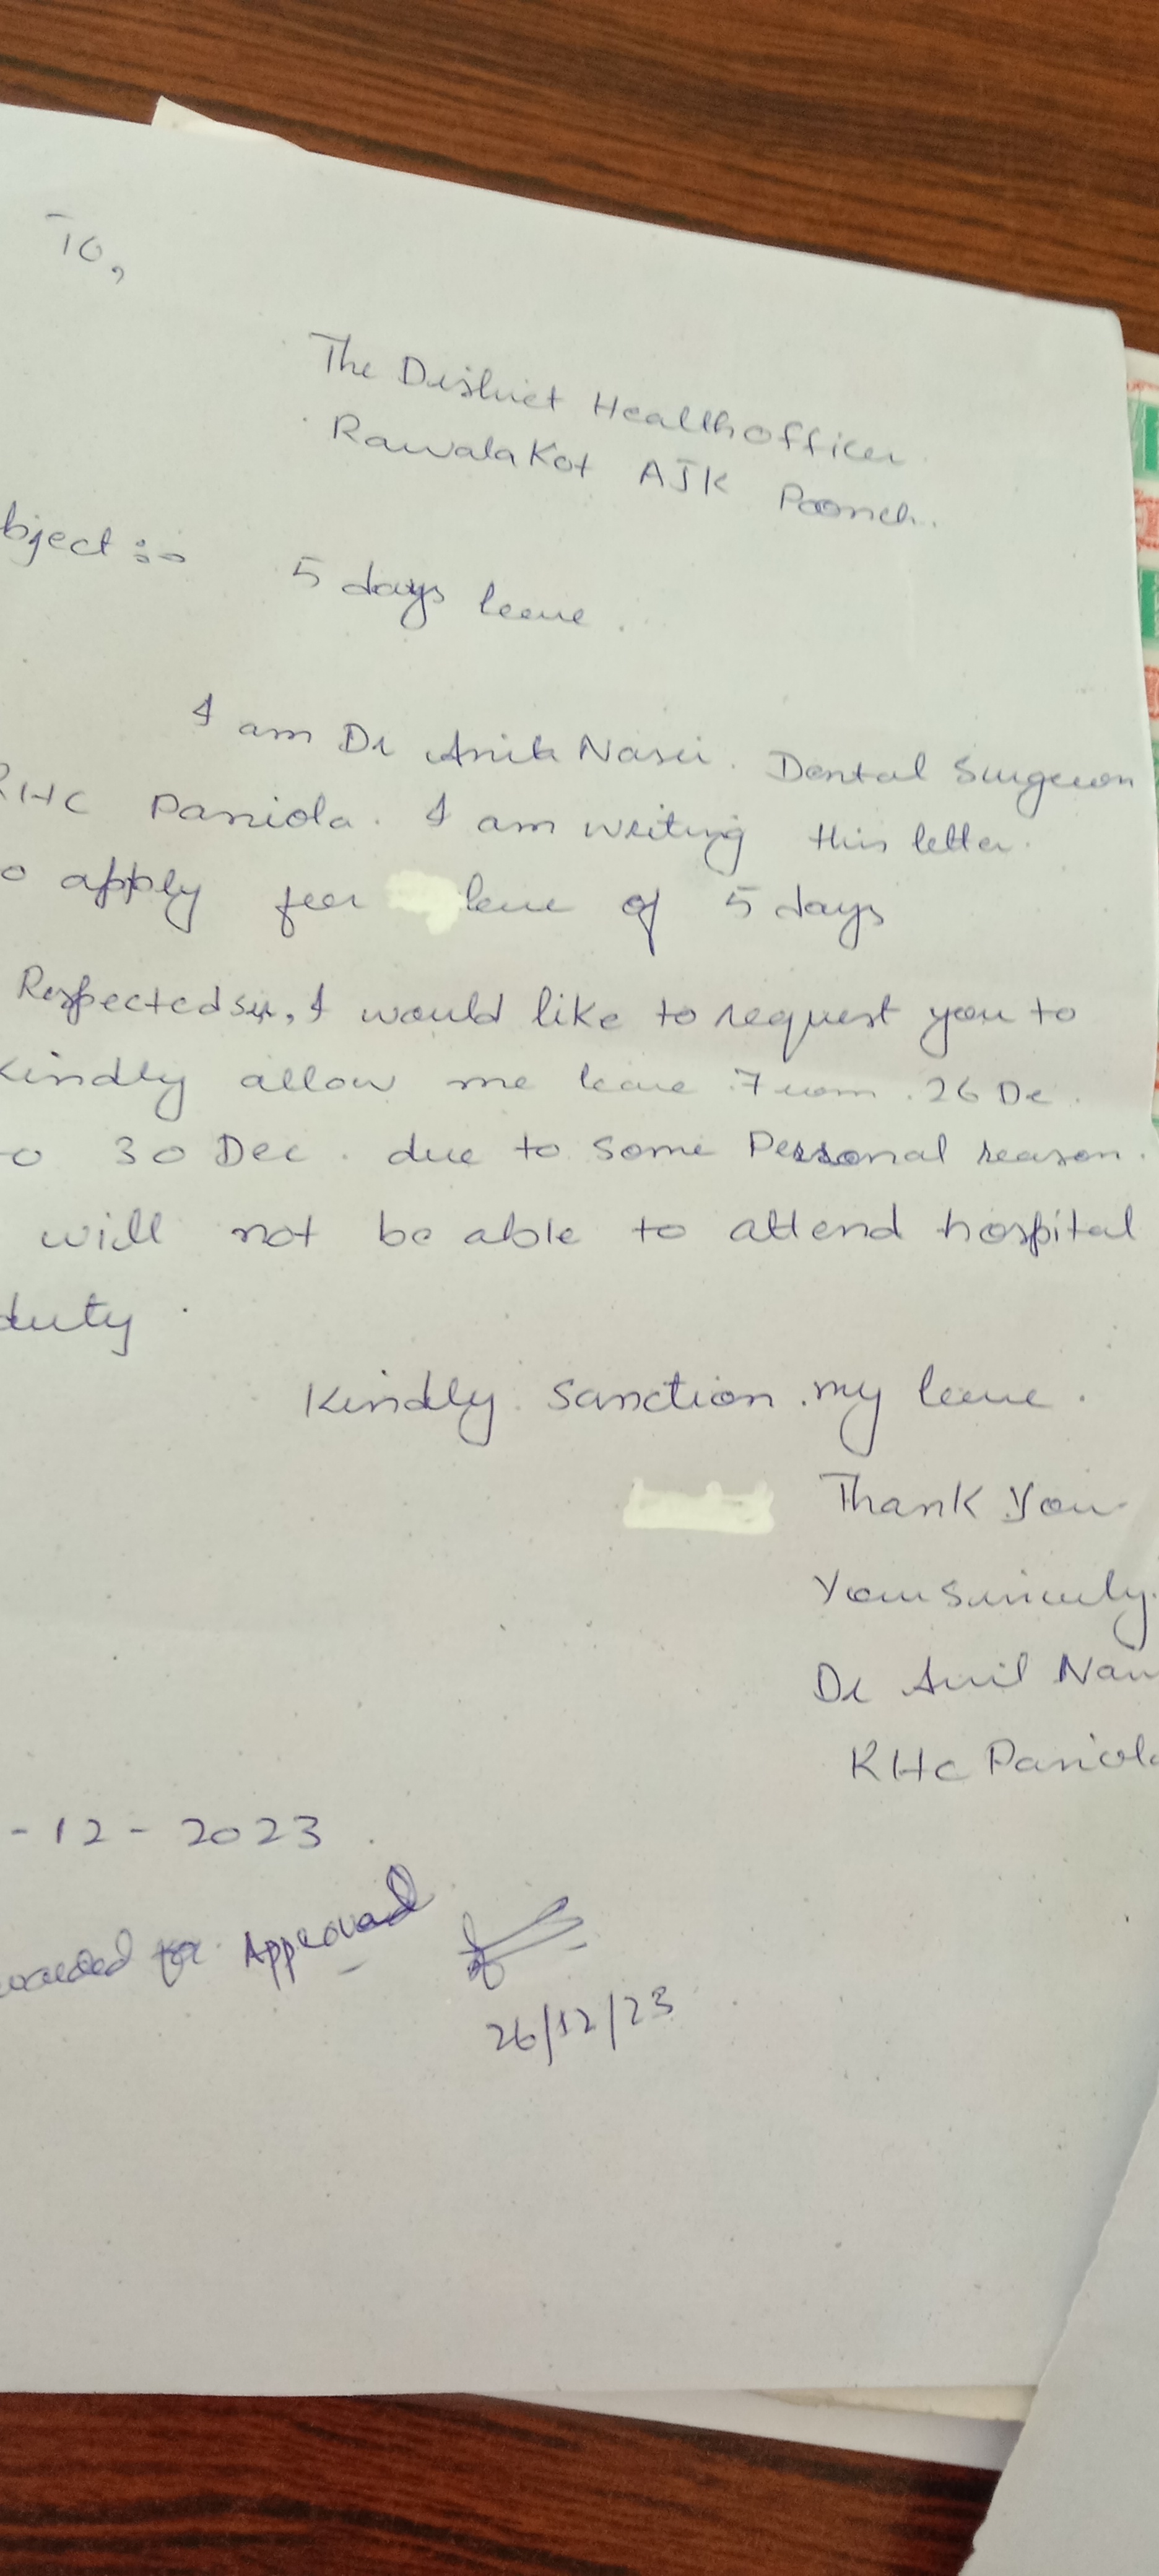 To,
The District Health officer
Rawalakot AJK Poonch.
bject :-
5 days leave.
I am Dr Anila Nasir. Dental Surgeon
RHC Paniola. I am writing this letter.
o apply for leve of 5 days
Respected sir, I would like to request you to
Kindly allow me leave From 26 De.
to 30 Dec. due to some Personal reason.
will not be able to attend hospital
duty.
Kindly sanction my leave.
Thank You
Your Sincerely.
Dr
RHC Paniola
-12-2023
for Approval
26/12/23